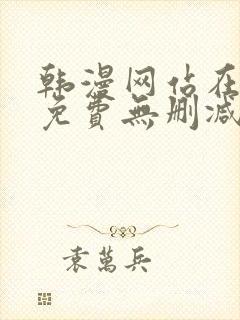 韩漫网佔在
免費無删减
袁萬兵